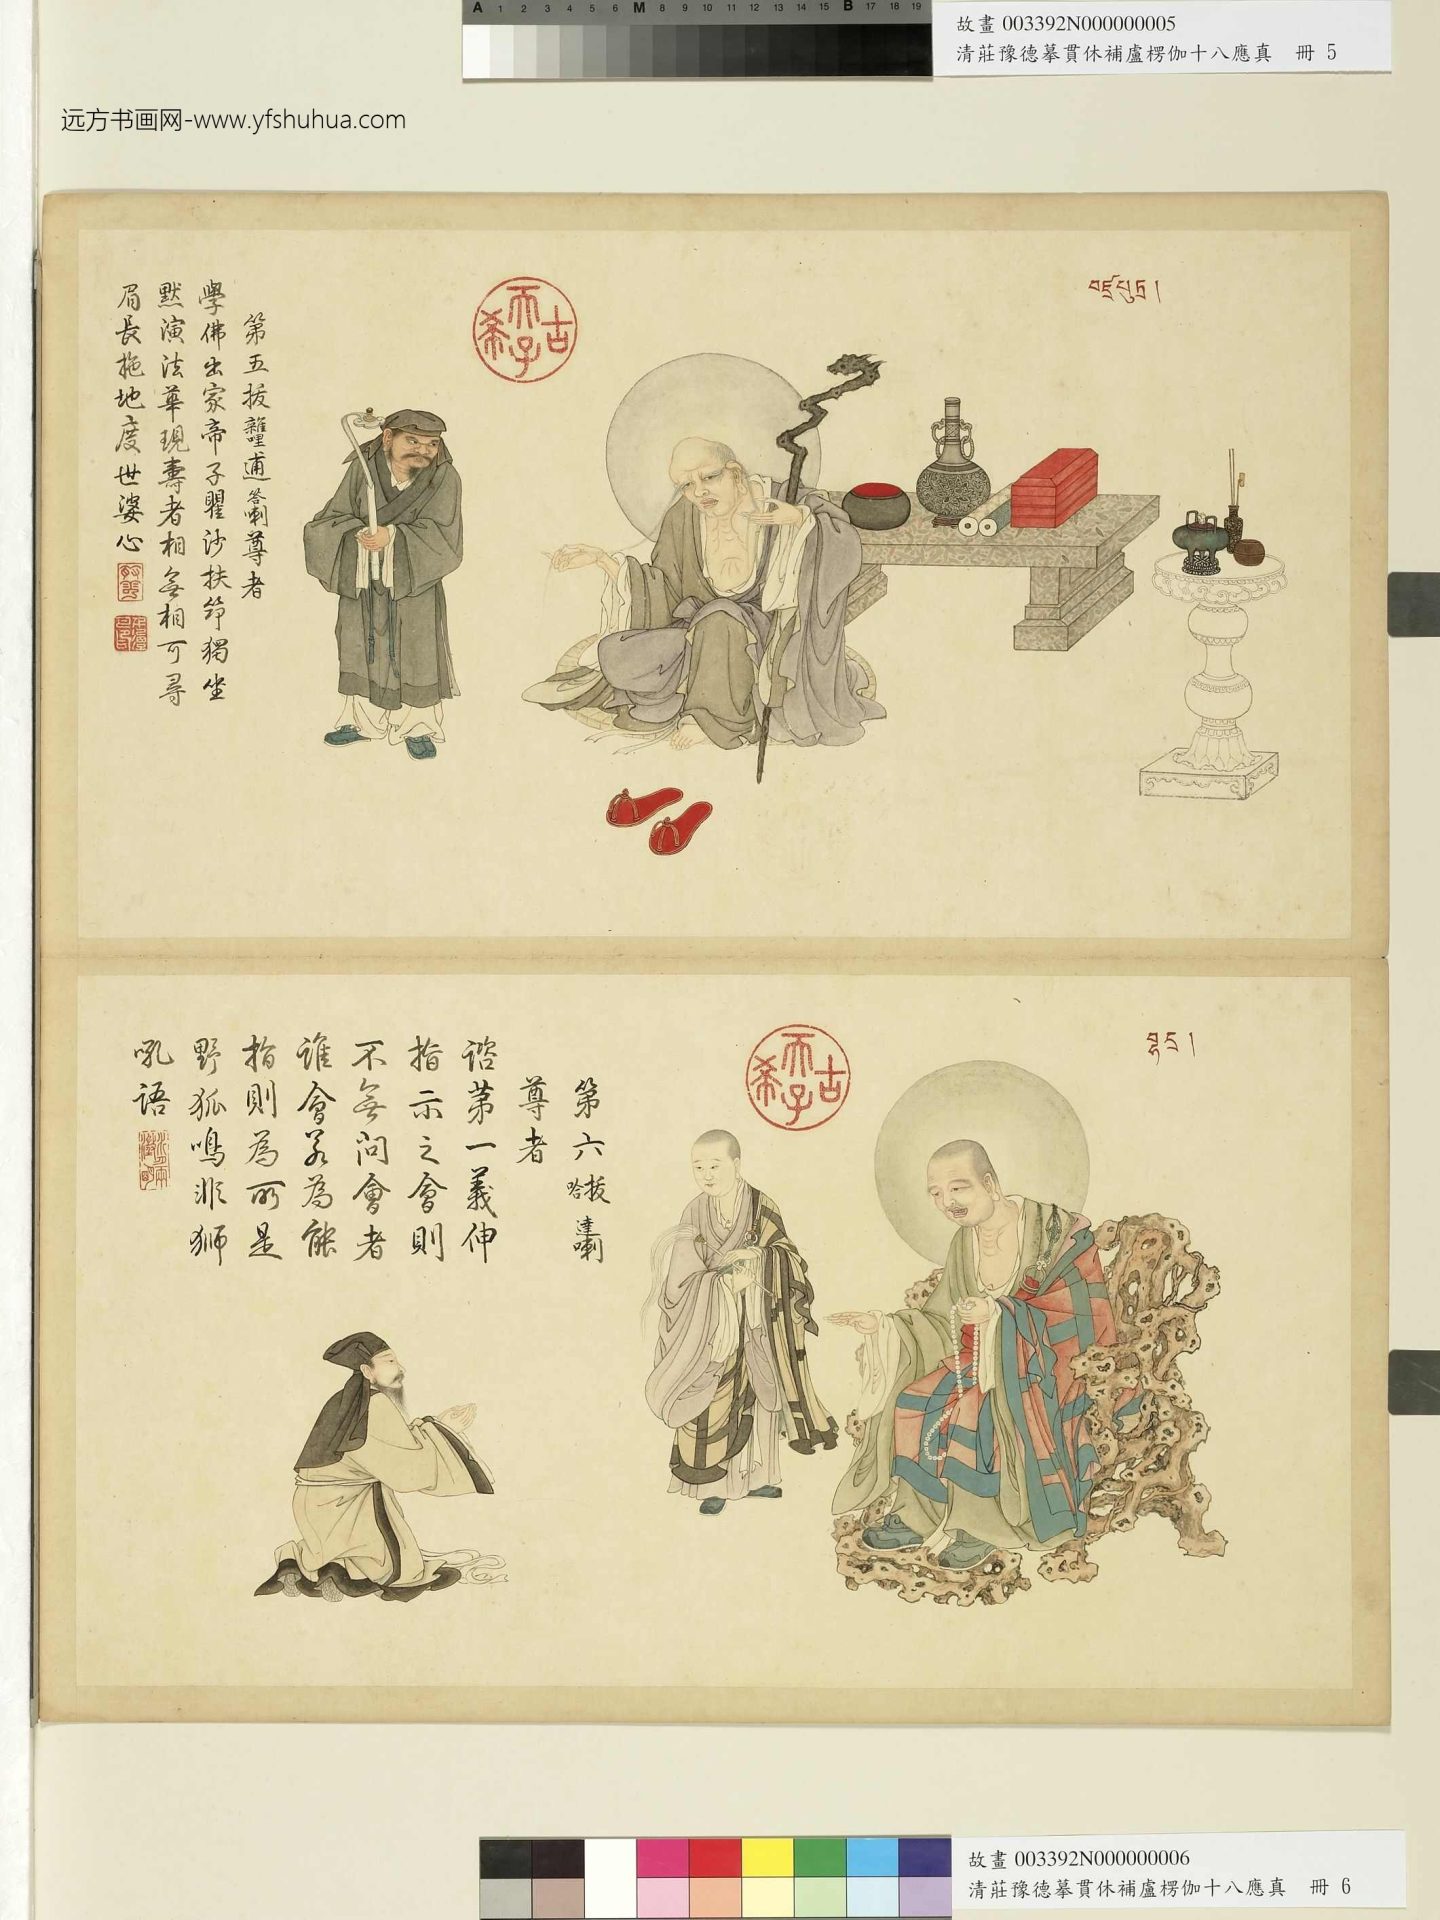 A 1 2 3 4 5 6 M 8 9 10 11 12 13 14 15 B 17 18 19
故畫 003392N000000005
清莊豫德摹貫休補盧楞伽十八應真 冊 5
远方书画网-www.yfshuhua.com
古希天子
第五拔雜哩逋答喇尊者
學佛出家帝子瞿沙扶笻獨坐
默演法華現壽者相無相可尋
眉長拖地度世婆心
古希天子
第六拔哈達喇
尊者
諮第一義伸
指示之會則
不無問會者
誰會若為能
指則為所是
野狐鳴非獅
吼語
故畫 003392N000000006
清莊豫德摹貫休補盧楞伽十八應真 冊 6